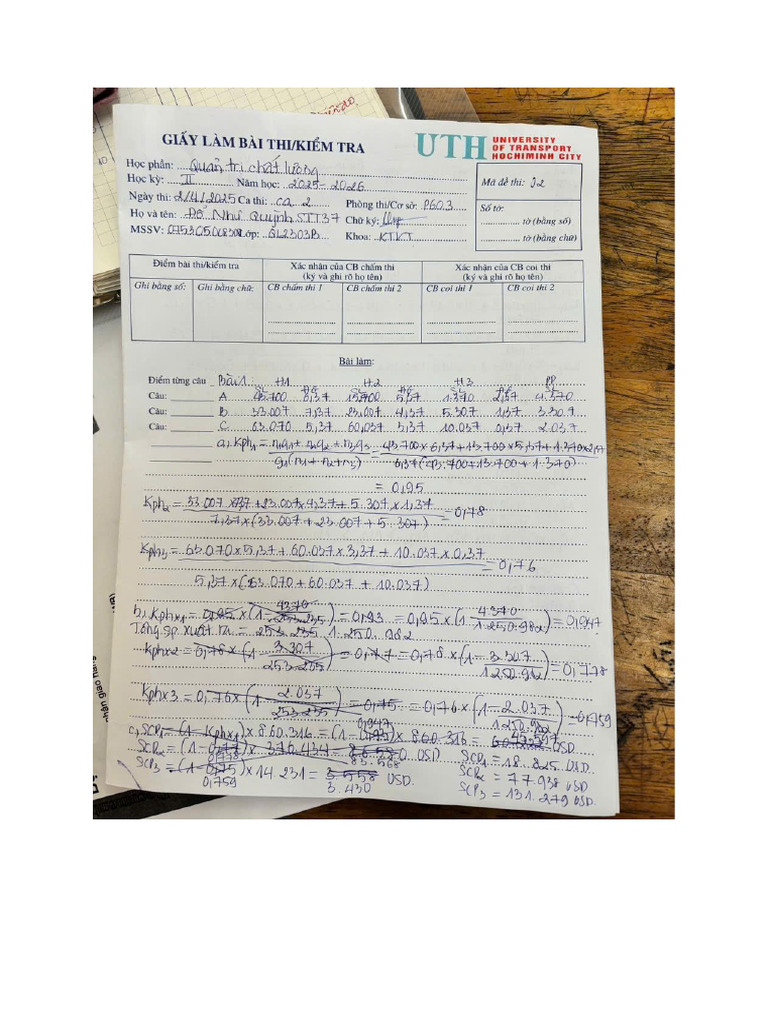 GIẤY LÀM BÀI THI/KIỂM TRA
UTH UNIVERSITY OF TRANSPORT HOCHIMINH CITY
Học phần: Quản trị chất lượng
Học kỳ: II Năm học: 2025-2026
Mã đề thi: 02
Ngày thi: 2/4/2025 Ca thi: ca 2 Phòng thi/Cơ sở: P603
Số tờ:
Họ và tên: Đỗ Như Quỳnh STT37 Chữ ký:
tờ (bằng số)
MSSV: Lớp: QL2303B Khoa: KTKT
tờ (bằng chữ)
Điểm bài thi/kiểm tra Xác nhận của CB chấm thi (ký và ghi rõ họ tên) Xác nhận của CB coi thi (ký và ghi rõ họ tên)
Ghi bằng số: Ghi bằng chữ: CB chấm thi 1 CB chấm thi 2 CB coi thi 1 CB coi thi 2
Bài làm:
Điểm từng câu Bài 1: H1 H2 H3 PP
SL ĐG SL ĐG SL ĐG SL
Câu: A 43.700 6,37 13.700 5,37 1.370 2,37 4.370
Câu: B 33.007 7,37 23.007 4,37 5.307 1,37 3.307
Câu: C 63.070 5,37 60.037 3,37 10.037 0,37 2.037
a, Kph1 = n1q1 + n2q2 + n3q3 / q1(n1 + n2 + n3) = 43.700 x 6,37 + 13.700 x 5,37 + 1.370 x 2,37 / 6,37 (43.700 + 13.700 + 1.370)
= 0,95
Kph2 = 33.007 x 7,37 + 23.007 x 4,37 + 5.307 x 1,37 / 7,37 x (33.007 + 23.007 + 5.307) = 0,78
Kph3 = 63.070 x 5,37 + 60.037 x 3,37 + 10.037 x 0,37 / 5,37 x (63.070 + 60.037 + 10.037) = 0,76
b, Kphx1 = 0,95 x (1 - 4370 / 253.235) = 0,93 = 0,95 x (1 - 4370 / 1.250.982) = 0,947
Tổng sp xuất ra = 253.235 1.250.982
Kphx2 = 0,78 x (1 - 3.307 / 253.235) = 0,77 = 0,78 x (1 - 3.307 / 1250.982) = 0,778
Kphx3 = 0,76 x (1 - 2.037 / 253.235) = 0,75 = 0,76 x (1 - 2.037 / 1250.982) = 0,759
c, SCP1 = (1 - Kphx1) x 860.316 = (1 - 0,947) x 860.316 = 45.597 USD
SCP2 = (1 - 0,77) x 376.434 = 0 USD
0,778 83.568
SCP3 = (1 - 0,75) x 14.231 = 3.558 USD.
0,759 3.430
SCP1 = 18.825 USD
SCP2 = 77.938 USD
SCP3 = 131.279 USD.